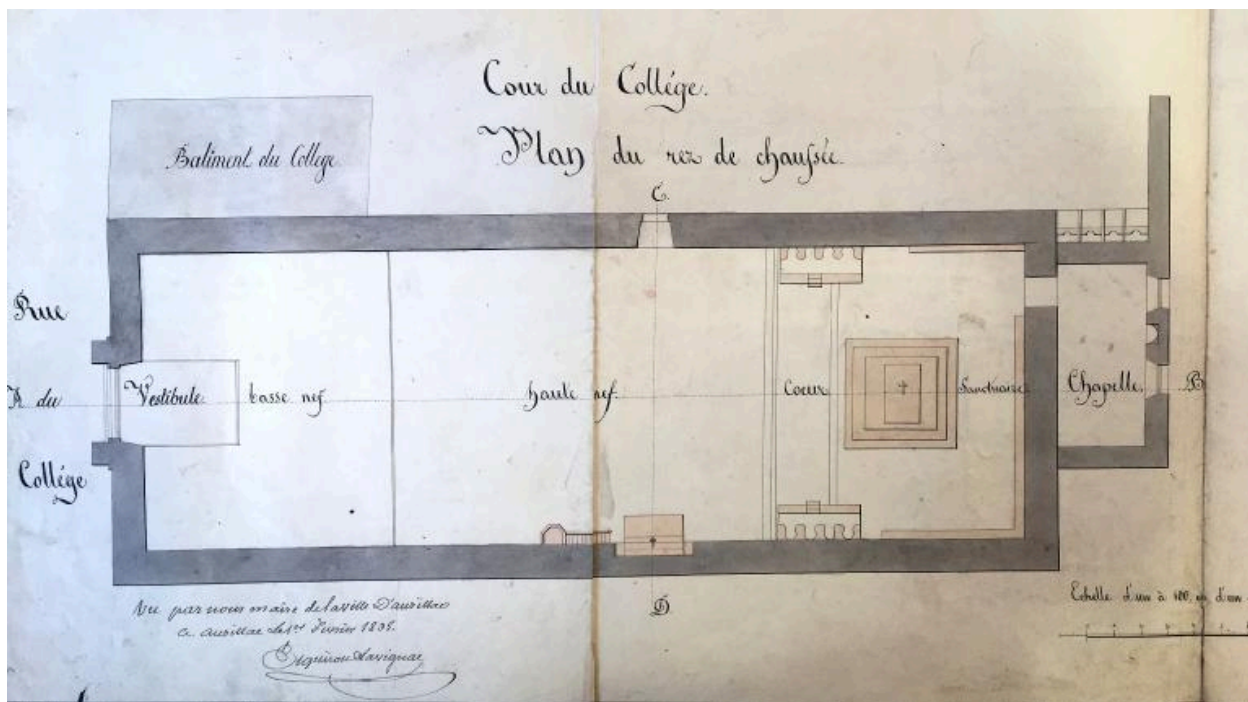 Cour du Collége.
Plan du rez de chaussée.
Batiment du College
C.
Rue
A du
Collége
Vestibule
basse nef
haute nef.
Coeur
Sanctuaire
Chapelle.
B
D
Vu par nous maire de la ville D'aurillac
a aurillac le 1er 1835.
Echelle d'un à 100, d'un